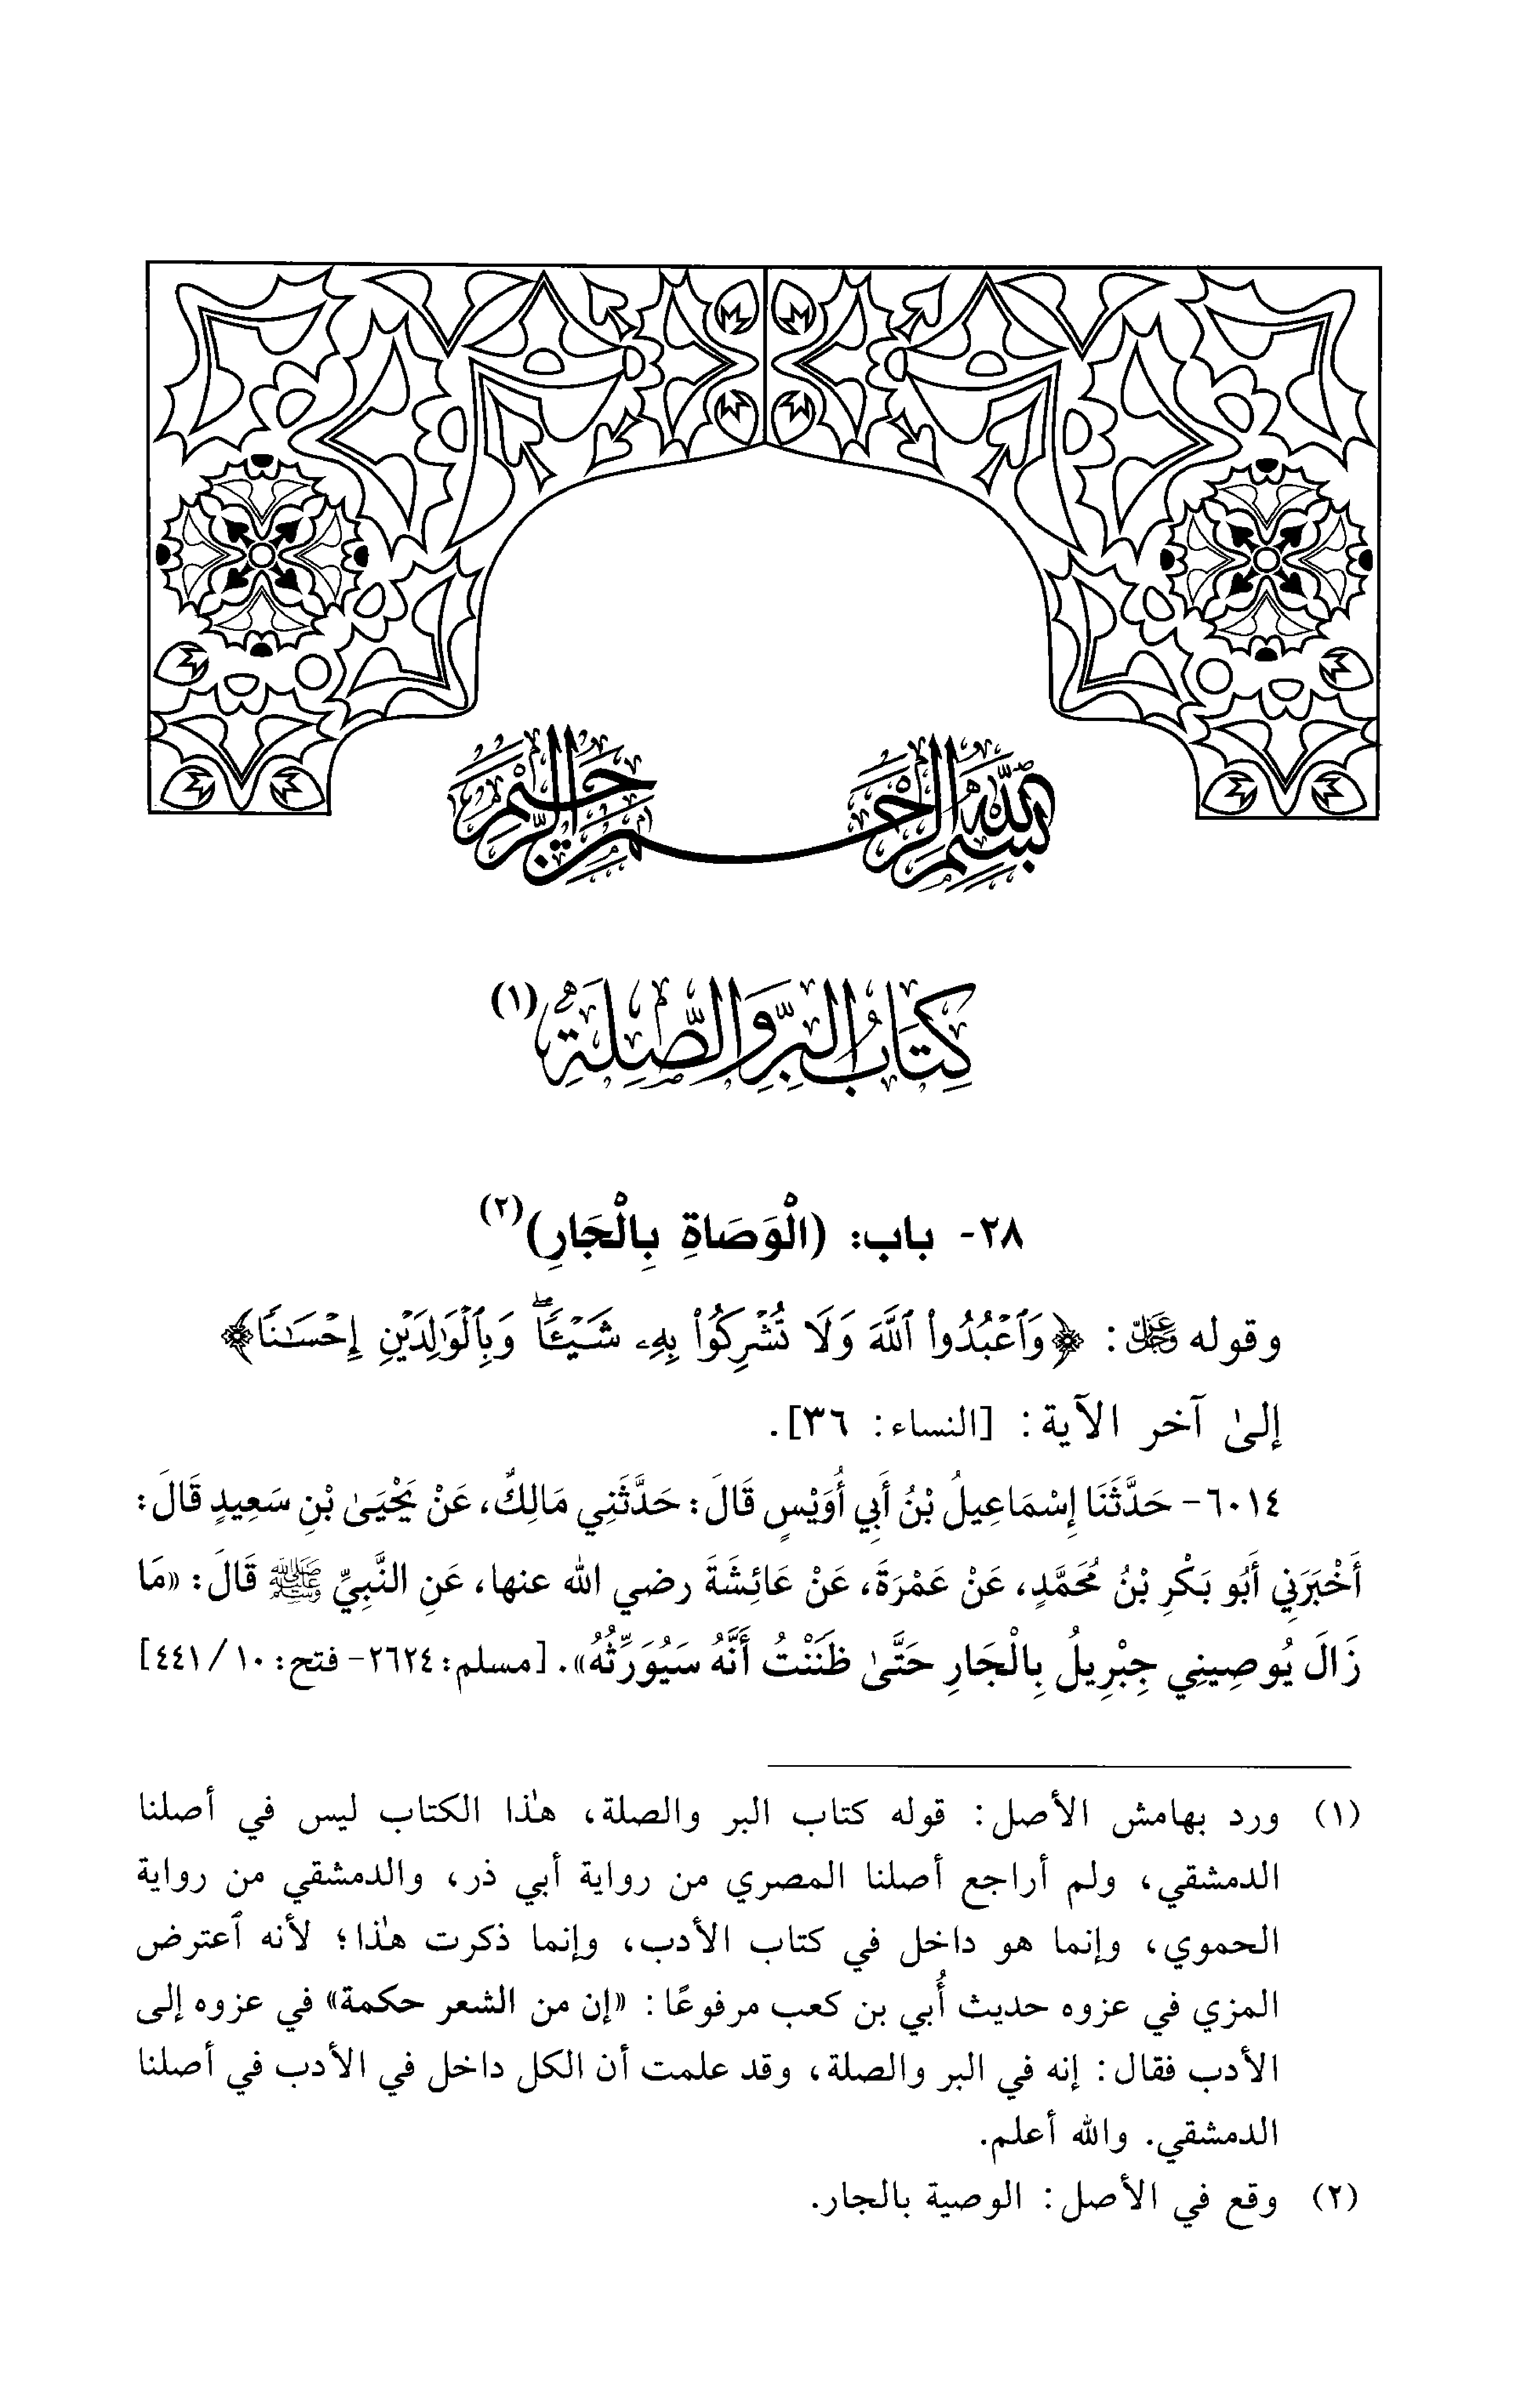 بِسْمِ اللهِ الرَّحْمٰنِ الرَّحِيْمِ
كِتَابُ البِرِّ وَالصِّلَةِ (١)
٢٨- باب: (الْوَصَاةِ بِالْجَارِ)(٢)
وقوله عَزَّ وَجَلَّ: ﴿وَٱعْبُدُوا۟ ٱللَّهَ وَلَا تُشْرِكُوا۟ بِهِۦ شَيْـًٔا ۖ وَبِٱلْوَٰلِدَيْنِ إِحْسَـٰنًا﴾
إلىٰ آخر الآية: [النساء: ٣٦].
٦٠١٤- حَدَّثَنَا إِسْمَاعِيلُ بْنُ أَبِي أُوَيْسٍ قَالَ: حَدَّثَنِي مَالِكٌ، عَنْ يَحْيَىٰ بْنِ سَعِيدٍ قَالَ:
أَخْبَرَنِي أَبُو بَكْرِ بْنُ مُحَمَّدٍ، عَنْ عَمْرَةَ، عَنْ عَائِشَةَ رضي الله عنها، عَنِ النَّبِيِّ ﷺ قَالَ: «مَا
زَالَ يُوصِينِي جِبْرِيلُ بِالْجَارِ حَتَّىٰ ظَنَنْتُ أَنَّهُ سَيُوَرِّثُهُ». [مسلم: ٢٦٢٤- فتح: ١٠/ ٤٤١]
(١) ورد بهامش الأصل: قوله كتاب البر والصلة، هٰذا الكتاب ليس في أصلنا
الدمشقي، ولم أراجع أصلنا المصري من رواية أبي ذر، والدمشقي من رواية
الحموي، وإنما هو داخل في كتاب الأدب، وإنما ذكرت هٰذا؛ لأنه ٱعترض
المزي في عزوه حديث أُبي بن كعب مرفوعًا: «إن من الشعر حكمة» في عزوه إلى
الأدب فقال: إنه في البر والصلة، وقد علمت أن الكل داخل في الأدب في أصلنا
الدمشقي. والله أعلم.
(٢) وقع في الأصل: الوصية بالجار.